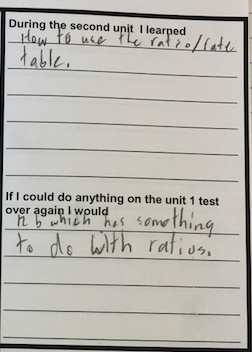 During the second unit I learned
How to use the ratio/rate
table.
If I could do anything on the unit 1 test
over again I would
b which has something
to do with ratios.